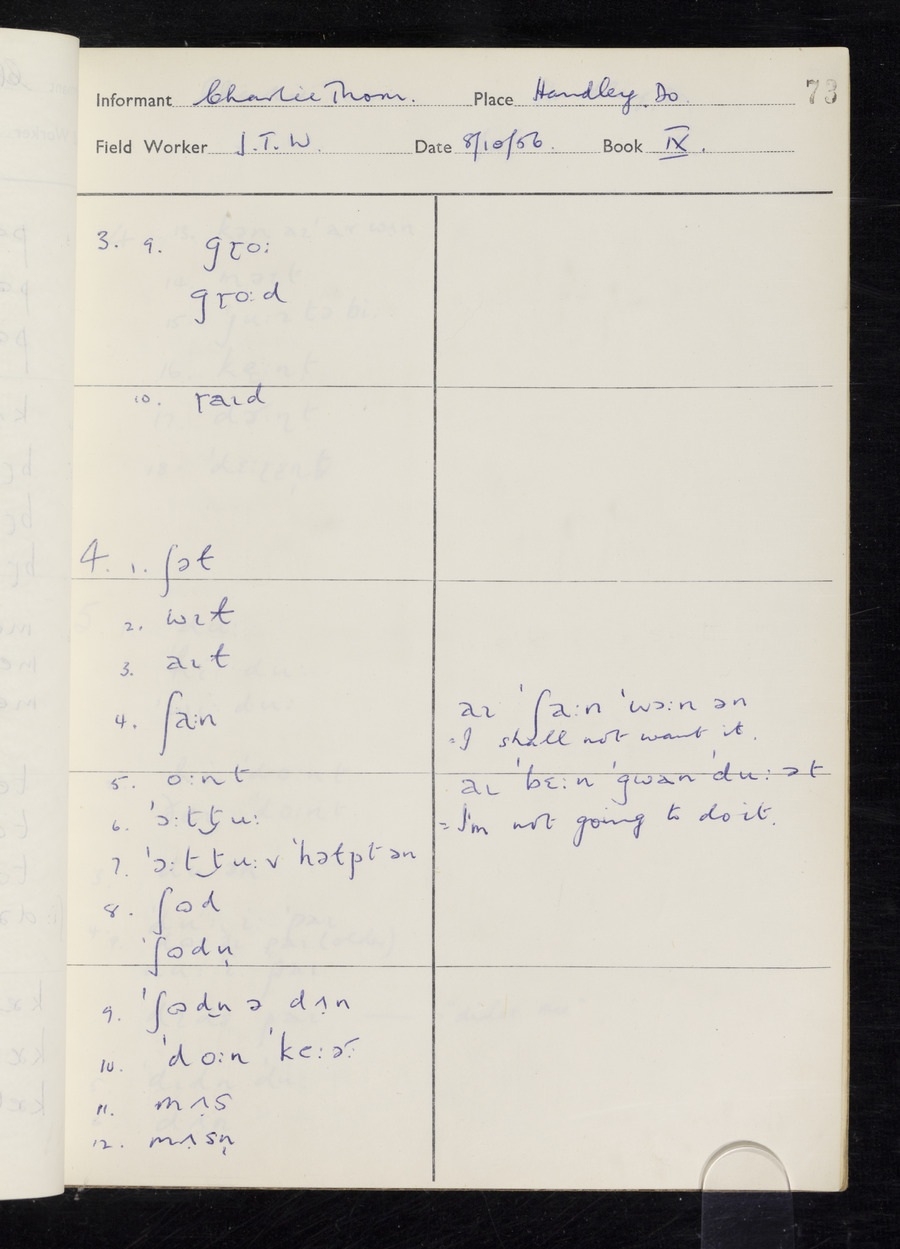 Informant Charlie Thom. Place Handley. Do. 73
Field Worker J.T.W. Date 8/10/56. Book IX.
3. 9. gɽo:
gɽo:d
10. ɽaɪd
4. 1. ʃət
2. wɪt
3. aɪt
4. ʃa:n
aɪ 'ʃa:n 'wɔ:n ən
= I shall not want it.
5. o:nt
aɪ 'bɛ:n 'gwan 'du: ət
6. 'ɔ:t‿t̬u:
= I'm not going to do it.
7. 'ɔ:t‿t̬u:v 'həɫpt ən
8. ʃɷd
'ʃɷdn̩
9. 'ʃɷdn̩ ə dʌn
10. 'do:n 'ke:ɚ:
11. mʌs
12. mʌsn̩